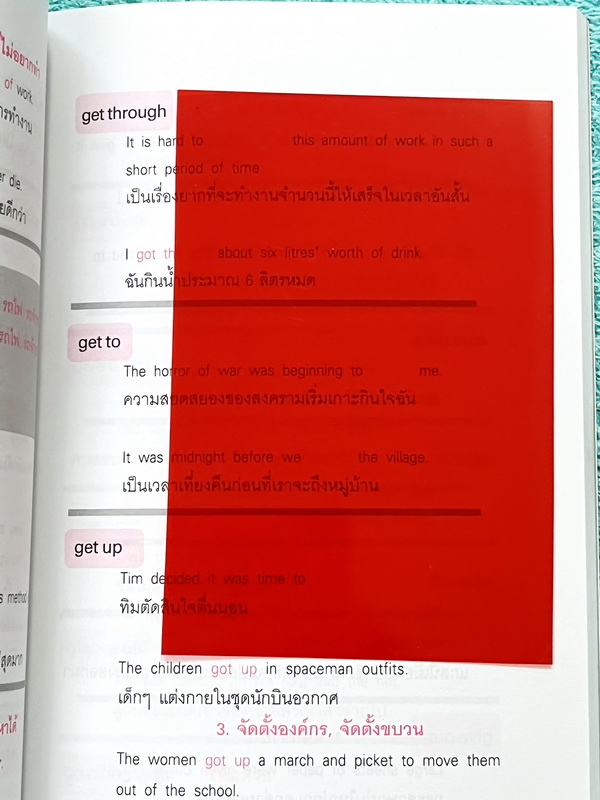 ไม่อยากทำ
of work.
การทำงาน
er die.
ยดีกว่า
รถไฟ
รถไฟ
s method
สุดมาก
หาได้
get through
It is hard to this amount of work in such a
short period of time
เป็นเรื่องยากที่จะทำงานจำนวนนี้ให้เสร็จในเวลาอันสั้น
I got th about six litres' worth of drink.
ฉันกินน้ำประมาณ 6 ลิตรหมด
get to
The horror of war was beginning to me.
ความสยดสยองของสงครามเริ่มเกาะกินใจฉัน
It was midnight before we the village.
เป็นเวลาเที่ยงคืนก่อนที่เราจะถึงหมู่บ้าน
get up
Tim decided it was time to
ทิมตัดสินใจตื่นนอน
The children got up in spaceman outfits.
เด็กๆ แต่งกายในชุดนักบินอวกาศ
3. จัดตั้งองค์กร, จัดตั้งขบวน
The women got up a march and picket to move them
out of the school.